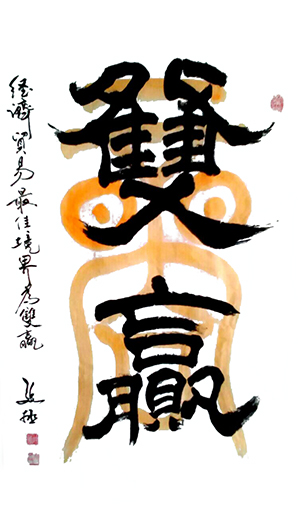 雙贏
經濟貿易最佳境界為雙贏